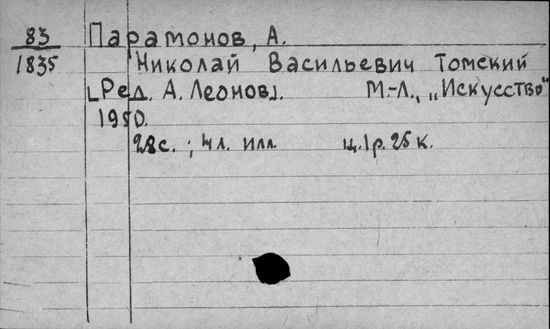 83 Парамонов, А.
1835 Николай Васильевич Томский
[Ред. А. Леонов]. М.-Л., „Искусство“
1950.
28с.; 4л. илл. ц.1р.25к.